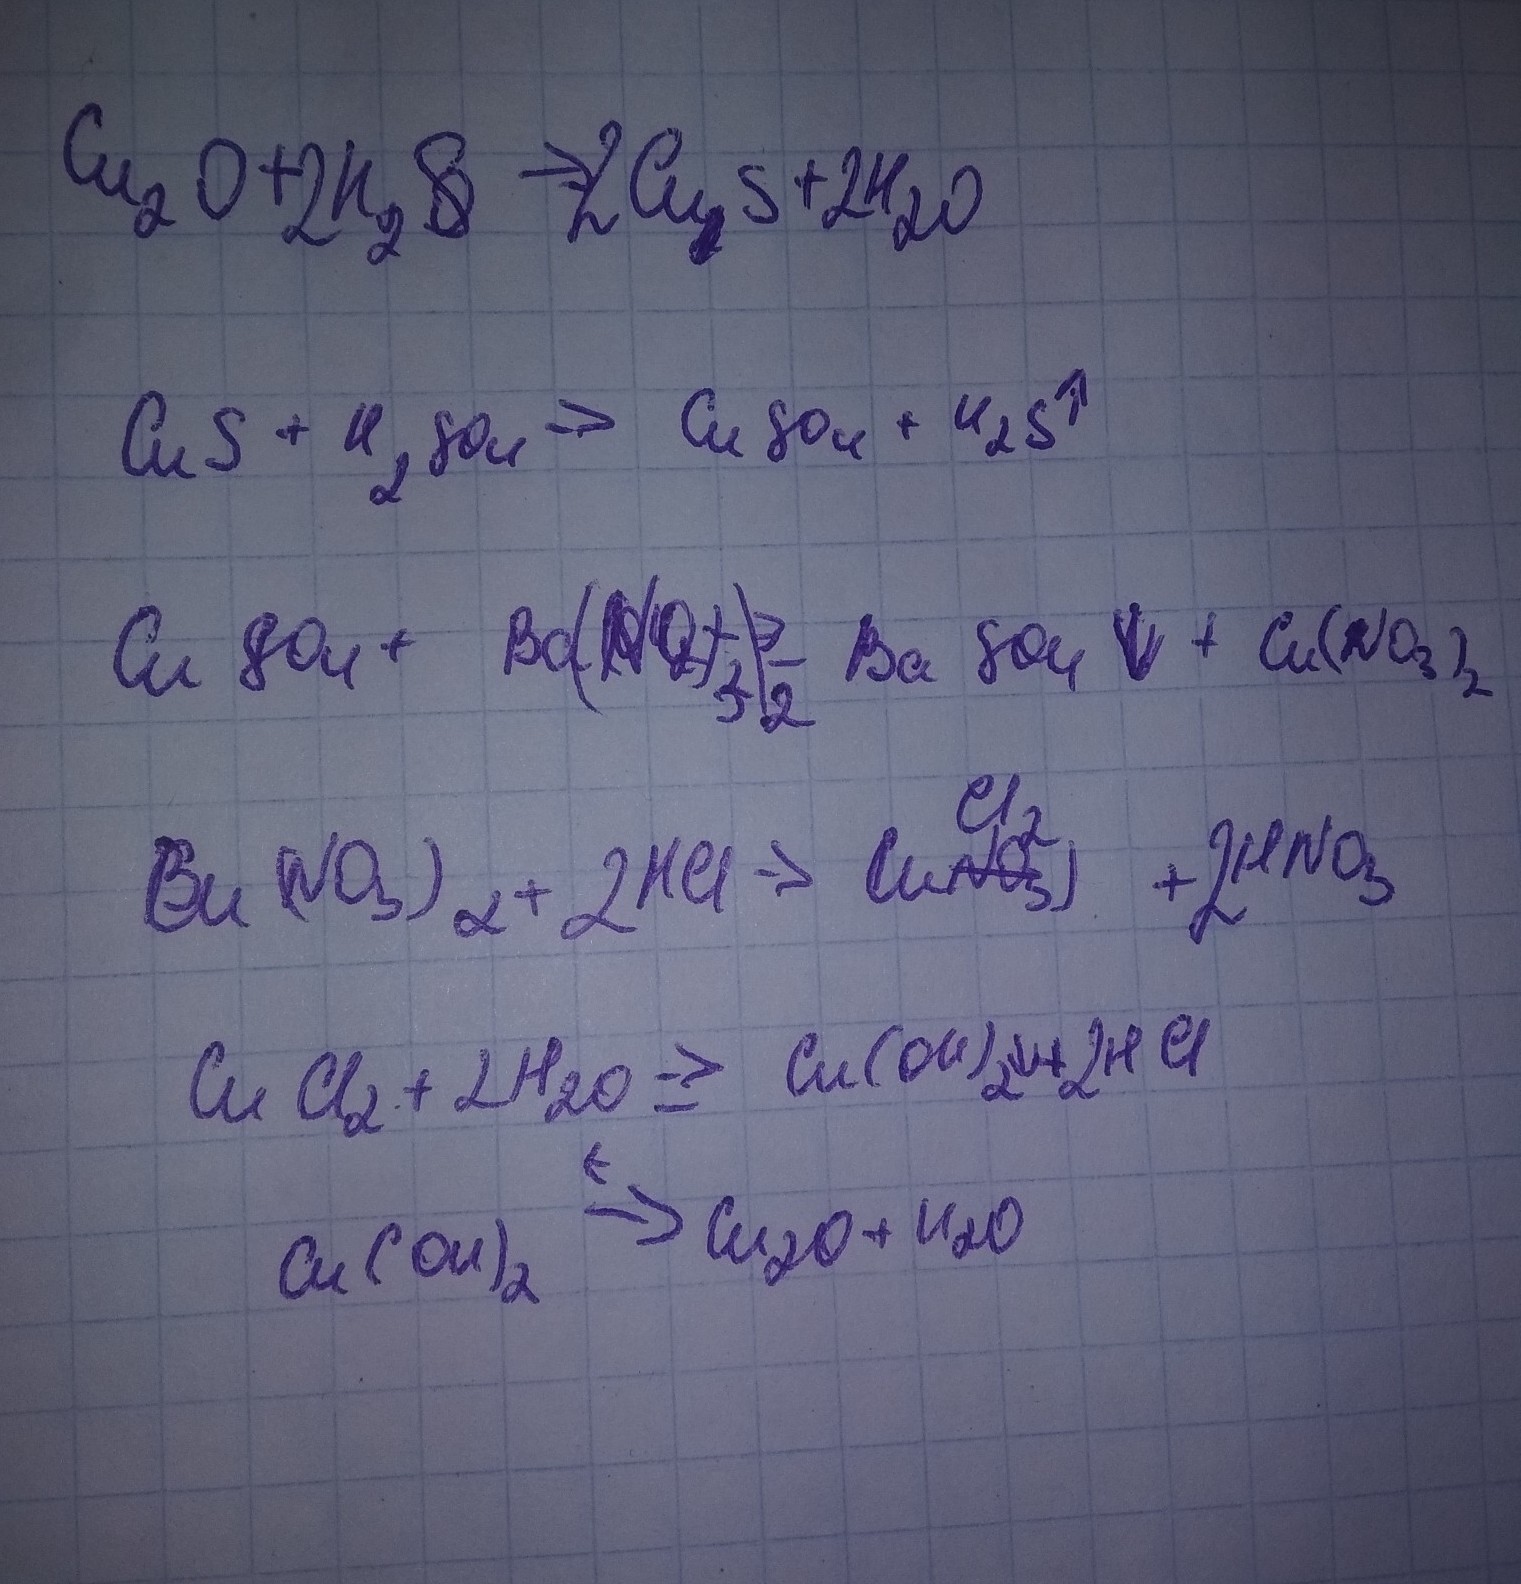 Cu₂O+2H₂S → 2CuS+2H₂O
CuS + H₂SO₄ → CuSO₄ + H₂S↑
CuSO₄ + Ba(NO₃)₂ = BaSO₄↓ + Cu(NO₃)₂
Cu(NO₃)₂ + 2HCl → CuCl₂ + 2HNO₃
CuCl₂ + 2H₂O ⇒ Cu(OH)₂↓+2HCl
t
Cu(OH)₂ → Cu₂O + H₂O